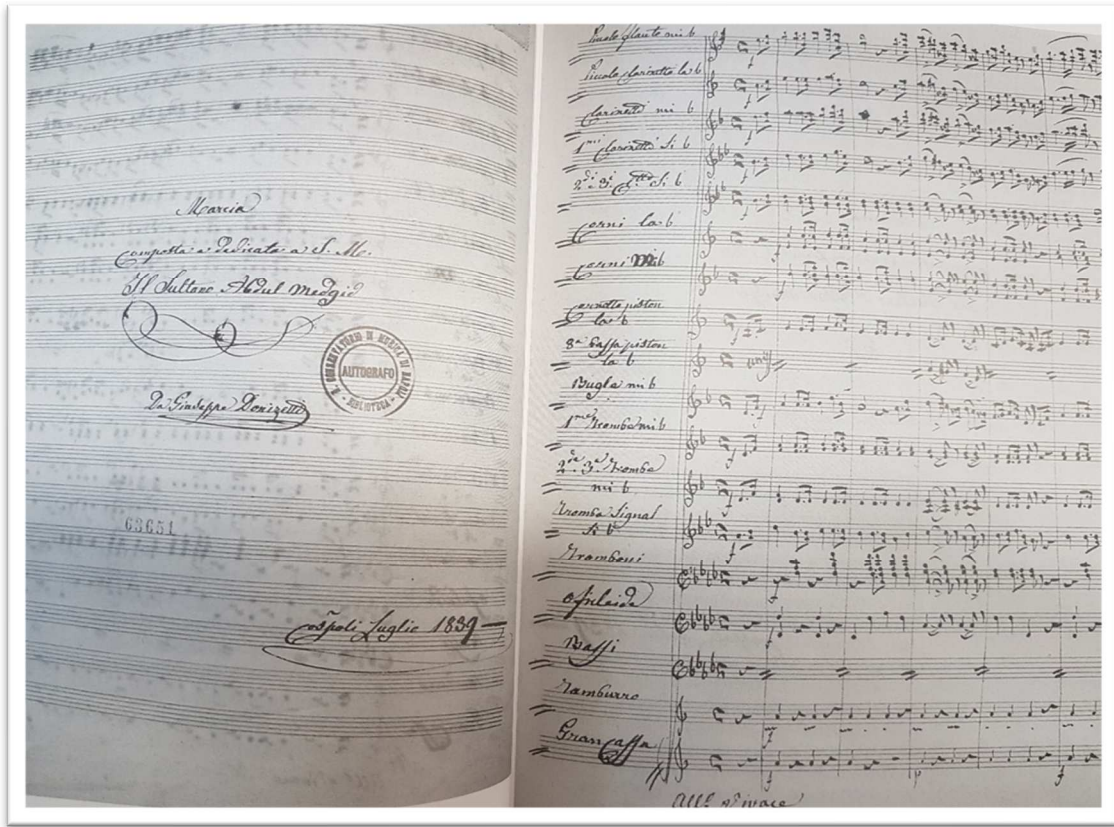 Marcia
Composta e Dedicata a S. M.
Il Sultano Abdul Medgid
R. CONSERVATORIO DI MUSICA DI NAPOLI
AUTOGRAFO
BIBLIOTECA
Da Giuseppe Donizetti
63651
Luglio 1839
Piccolo flauto mi b
Piccolo Clarinetto la b
Clarinetti mi b
1mi Clarinetti Si b
2di e 3i Si b
Corni la b
Corni Mi b
Cornetta piston
la b
piston
la b
Bugle mi b
Trombe mi b
2de 3e Trombe
mi b
Tromba Signal
Si b
Tromboni
Ofileide
Bassi
Tamburro
Gran Cassa
All° Vivace